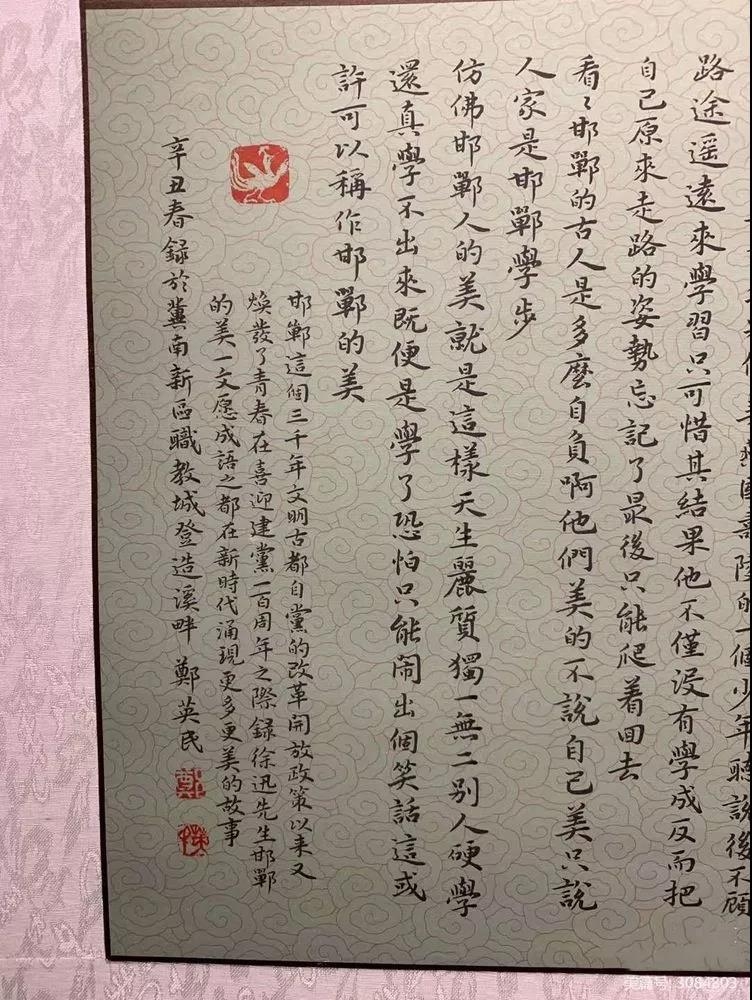 國壽陵的一個少年聽說後不顧
路途遥遠來學習只可惜其結果他不僅没有學成反而把
自己原來走路的姿勢忘記了最後只能爬着回去
看〻邯鄲的古人是多麽自負啊他們美的不說自己美只說
人家是邯鄲學步
仿佛邯鄲人的美就是這樣天生麗質獨一無二别人硬學
還真學不出來既便是學了恐怕只能鬧出個笑話這或
許可以稱作邯鄲的美
邯鄲這個三千年文明古都自黨的改革開放政策以来又
焕發了青春在喜迎建黨一百周年之際録徐迅先生邯鄲
的美一文愿成語之都在新時代涌現更多更美的故事
辛丑春録於冀南新區職教城登造溪畔 鄭英民
鄭
美篇号 | 3084803